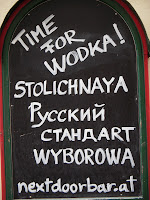 TIME
FOR
WODKA!
STOLICHNAYA
Русский
СТАНДАРТ
WYBOROWA
nextdoorbar.at